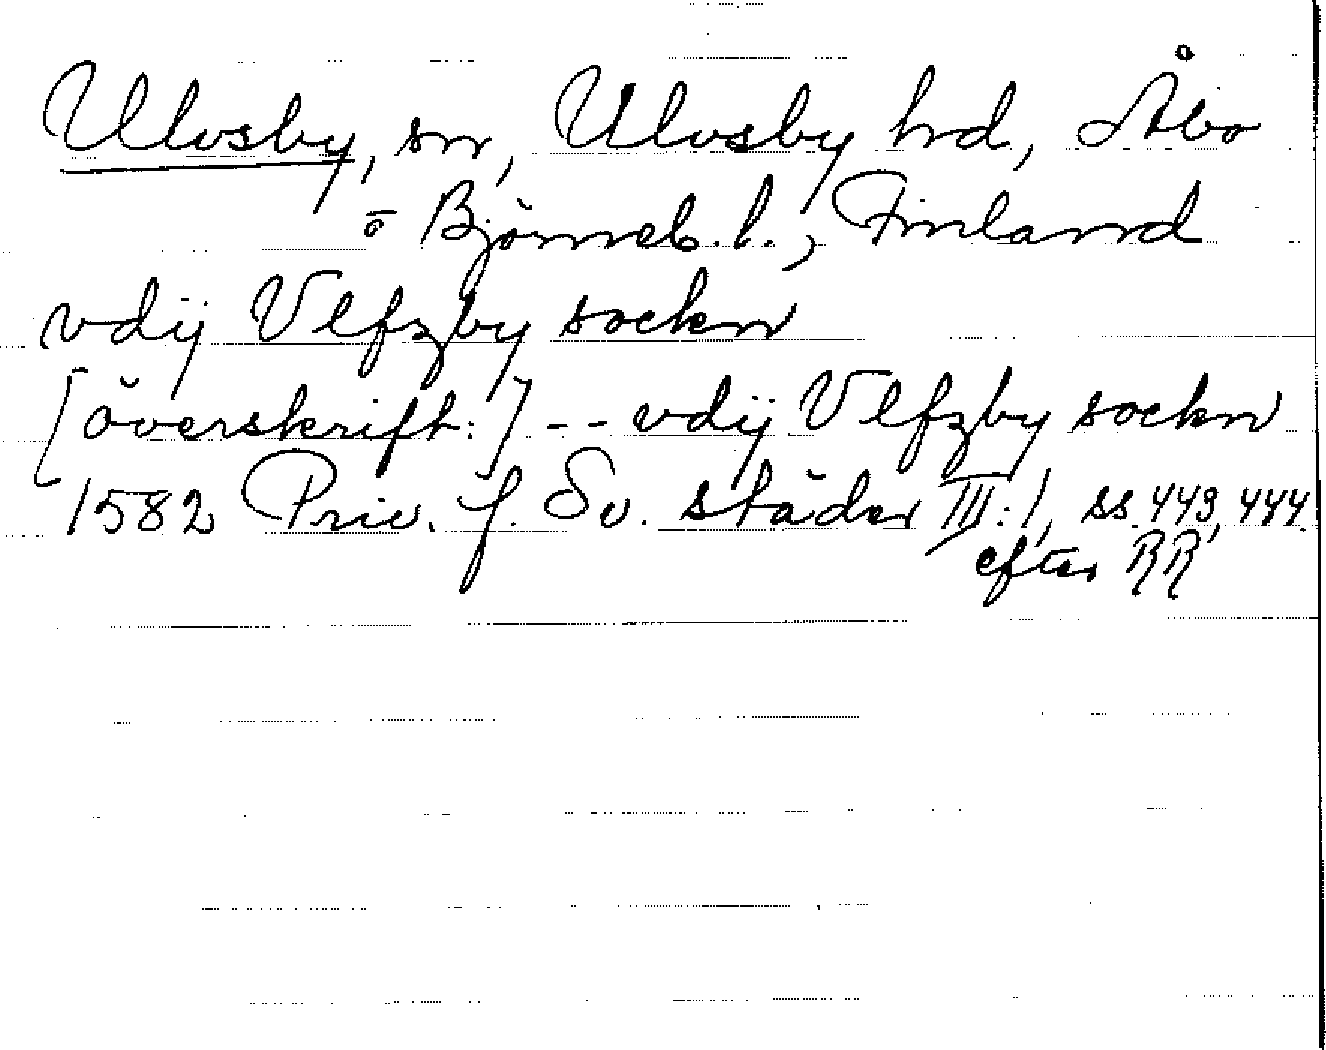 Ulvsby, sn, Ulvsby hd, Åbo
o Björneb. l., Finland
vdij Vlfzby sockn
[överskrift:] -- vdij Vlfzby sockn
1582 Priv. f. Sv. städer III:1, ss 443, 444
efter RR